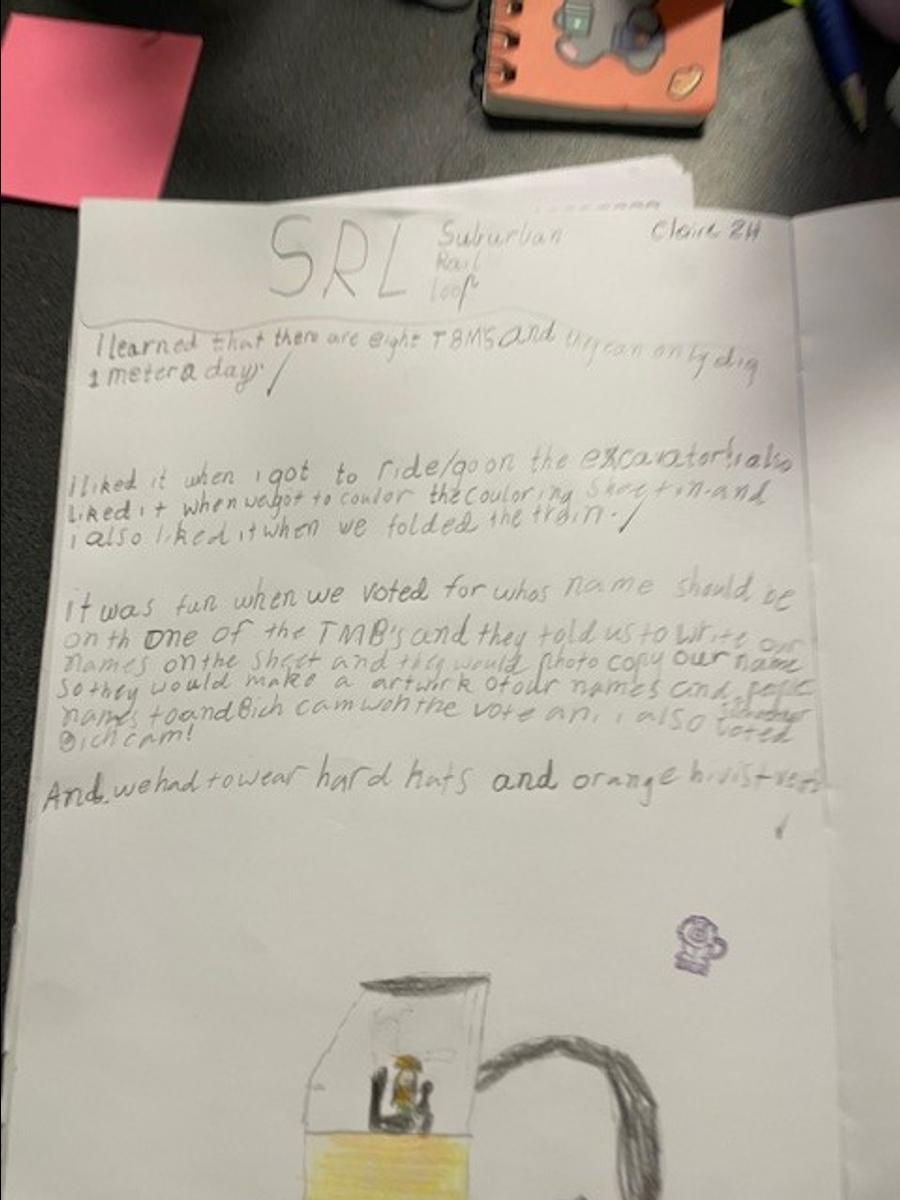 SRL
Suburban
Rail
loop
Claire 2H
I learned that there are eight TBM'S and they can only dig
1 meter a day.
I liked it when i got to ride/go on the excavator! i also
Liked it when we got to coulor the coulor ing Sheet in. and
i also liked it when we folded the train.
It was fun when we voted for whos name should be
on th one of the TMB's and they told us to Write our
names on the sheet and they would photo copy our name
so they would make a artwork of our names and
names to and Bich cam won the vote an. i also voted
Bich cam!
And we had to wear hard hats and orange